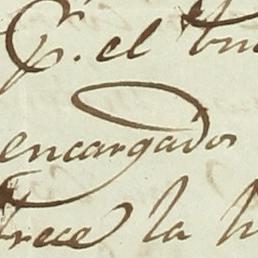 P. el
encargados
trece la